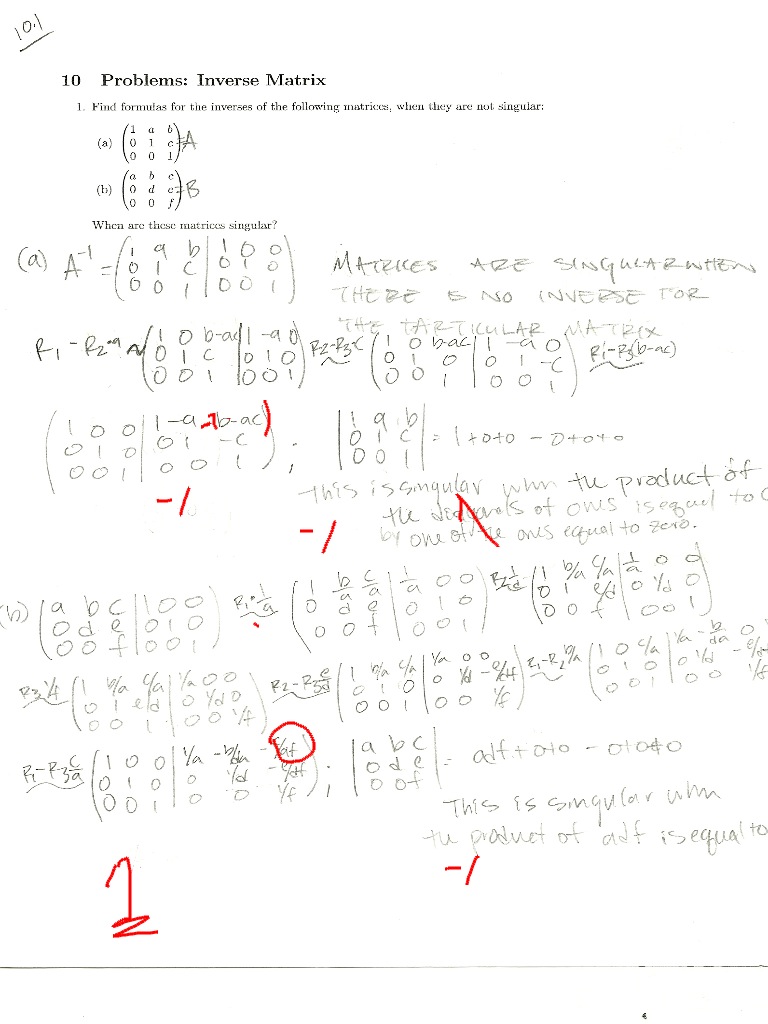 10.1
10 Problems: Inverse Matrix
1. Find formulas for the inverses of the following matrices, when they are not singular:
(a) (1 a b
0 1 c
0 0 1) = A
(b) (a b c
0 d e
0 0 f) = B
When are these matrices singular?
(a) A⁻¹ = (1 a b | 1 0 0
0 1 c | 0 1 0
0 0 1 | 0 0 1)
MATRICES ARE SINGULAR WHEN
THERE IS NO INVERSE FOR
THE PARTICULAR MATRIX
R1 - R2·a ~ (1 0 b-ac | 1 -a 0
0 1 c | 0 1 0
0 0 1 | 0 0 1)
R2-R3·c (1 0 b-ac | 1 -a 0
0 1 0 | 0 1 -c
0 0 1 | 0 0 1)
R1-R3(b-ac)
(1 0 0 | 1 -a -b-ac)
0 1 0 | 0 1 -c
0 0 1 | 0 0 1) ;
|1 a b
0 1 c
0 0 1| = 1+0+0 - 0+0+0
-1
This is singular whn the product of
the diagonals of ones is equal to
by one of the ones equal to zero.
-1
(b) (a b c | 1 0 0
0 d e | 0 1 0
0 0 f | 0 0 1)
R1·1/a (1 b/a c/a | 1/a 0 0
0 d e | 0 1 0
0 0 f | 0 0 1)
R2 1/d (1 b/a c/a | 1/a 0 0
0 1 e/d | 0 1/d 0
0 0 f | 0 0 1)
R3 1/f (1 b/a c/a | 1/a 0 0
0 1 e/d | 0 1/d 0
0 0 1 | 0 0 1/f)
R2-R3 e/d (1 b/a c/a | 1/a 0 0
0 1 0 | 0 1/d -e/df
0 0 1 | 0 0 1/f)
R1-R2 b/a (1 0 c/a | 1/a -b/da 0
0 1 0 | 0 1/d -e/d
0 0 1 | 0 0 1/f
R1-R3 c/a (1 0 0 | 1/a -b/da -c/af
0 1 0 | 0 1/d -e/df
0 0 1 | 0 0 1/f) ;
|a b c
0 d e
0 0 f| = adf+0+0 - 0+0+0
This is singular whn
the product of adf is equal to
-1
1